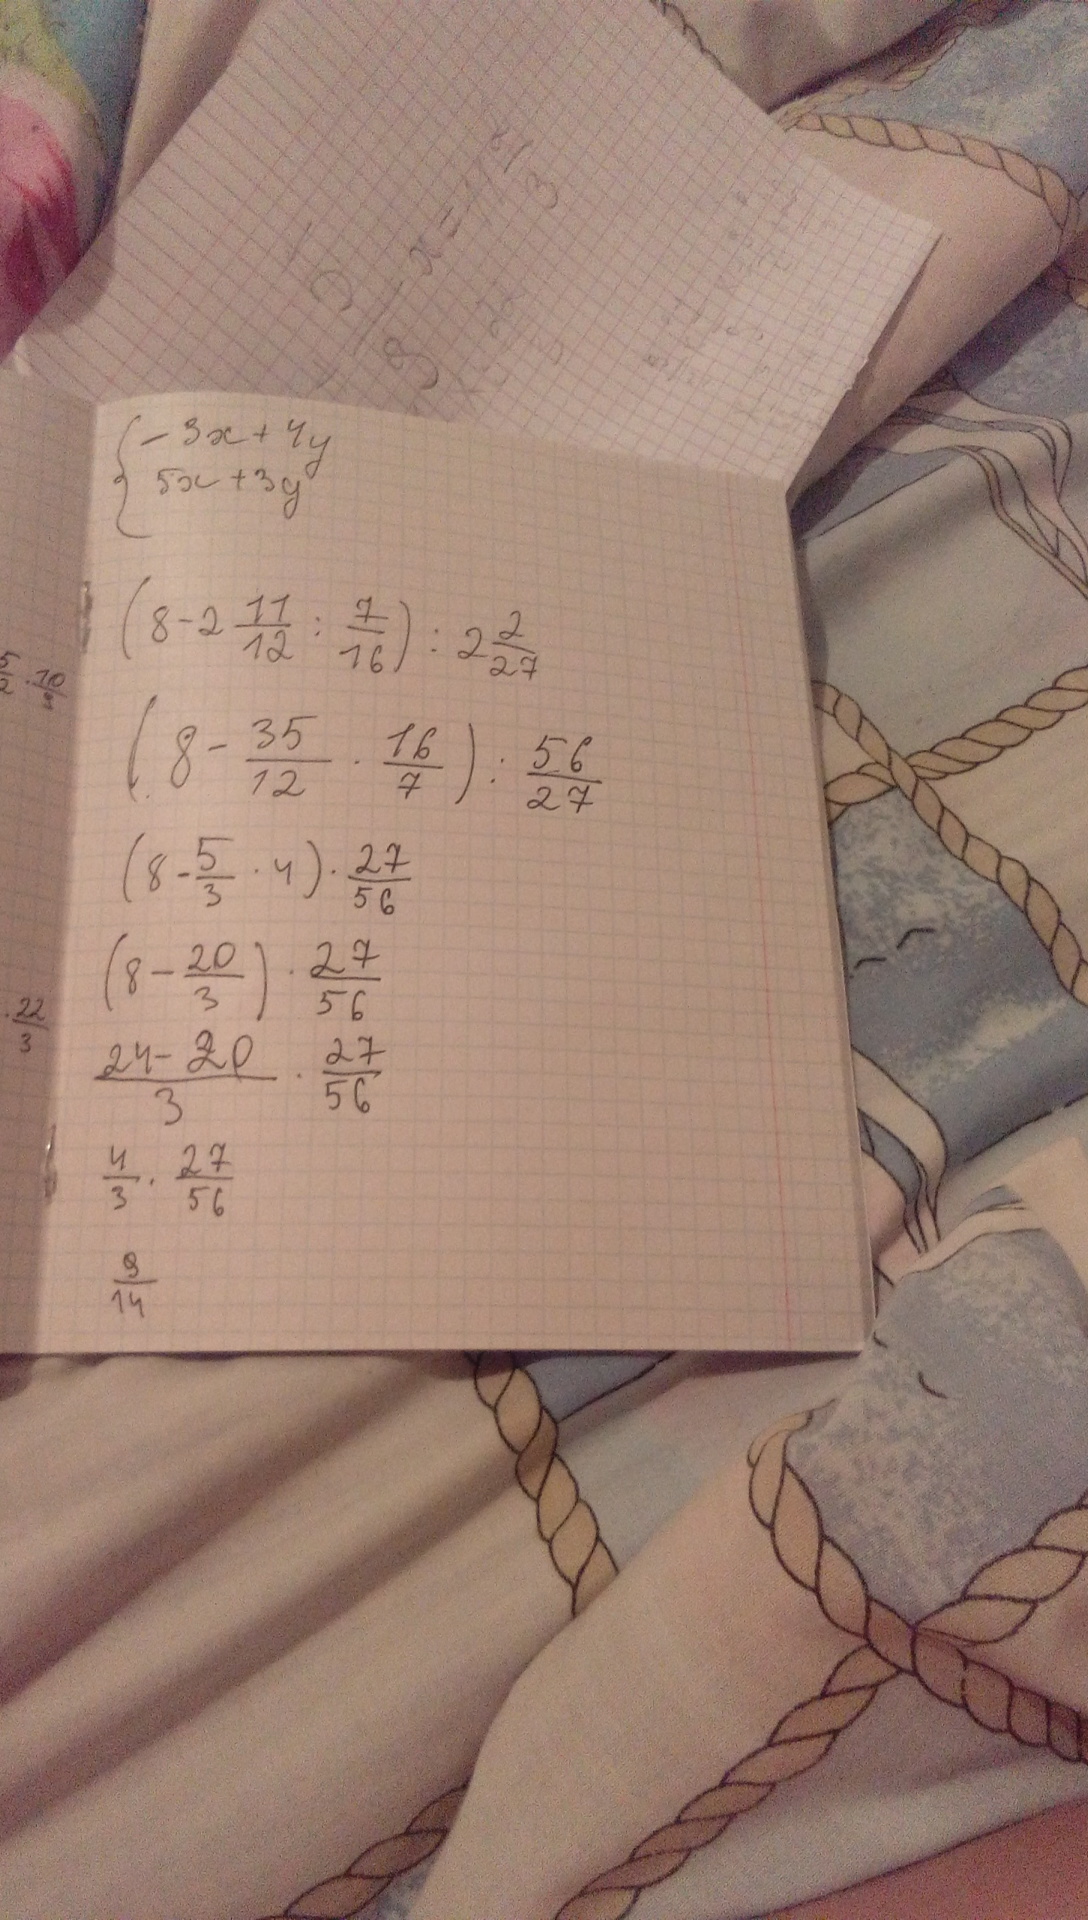 { - 3x + 4y
5x + 3y
(8 - 2 11/12 : 7/16) : 2 2/27
(8 - 35/12 · 16/7) : 56/27
(8 - 5/3 · 4) · 27/56
(8 - 20/3) · 27/56
(24 - 20)/3 · 27/56
4/3 · 27/56
9/14
· 10/9
· 22/3